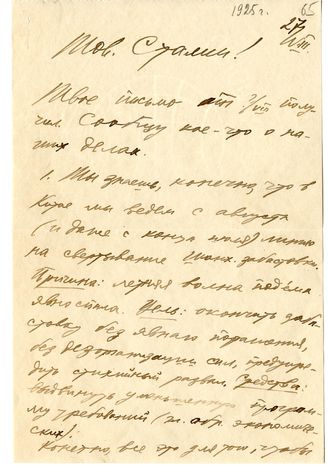 1925 г. 65
27/VIII
Тов. Сталин!
Твое письмо от 7/VIII полу-
чил. Сообщу кое-что о на-
ших делах.
1. Ты знаешь, конечно, что в
Китае мы ведем с августа
(и даже с конца июля) линию
на свертывание шанх. забастовки.
Причина: летняя волна подъема
явно спала. Цель: окончить заба-
стовку без явного поражения,
без дезорганизации сил, предупре-
дить стихийный развал. Средство:
выдвинуть уменьшенную програм-
му требований (гл. обр. экономиче-
ских).
Конечно, все это для того, чтобы